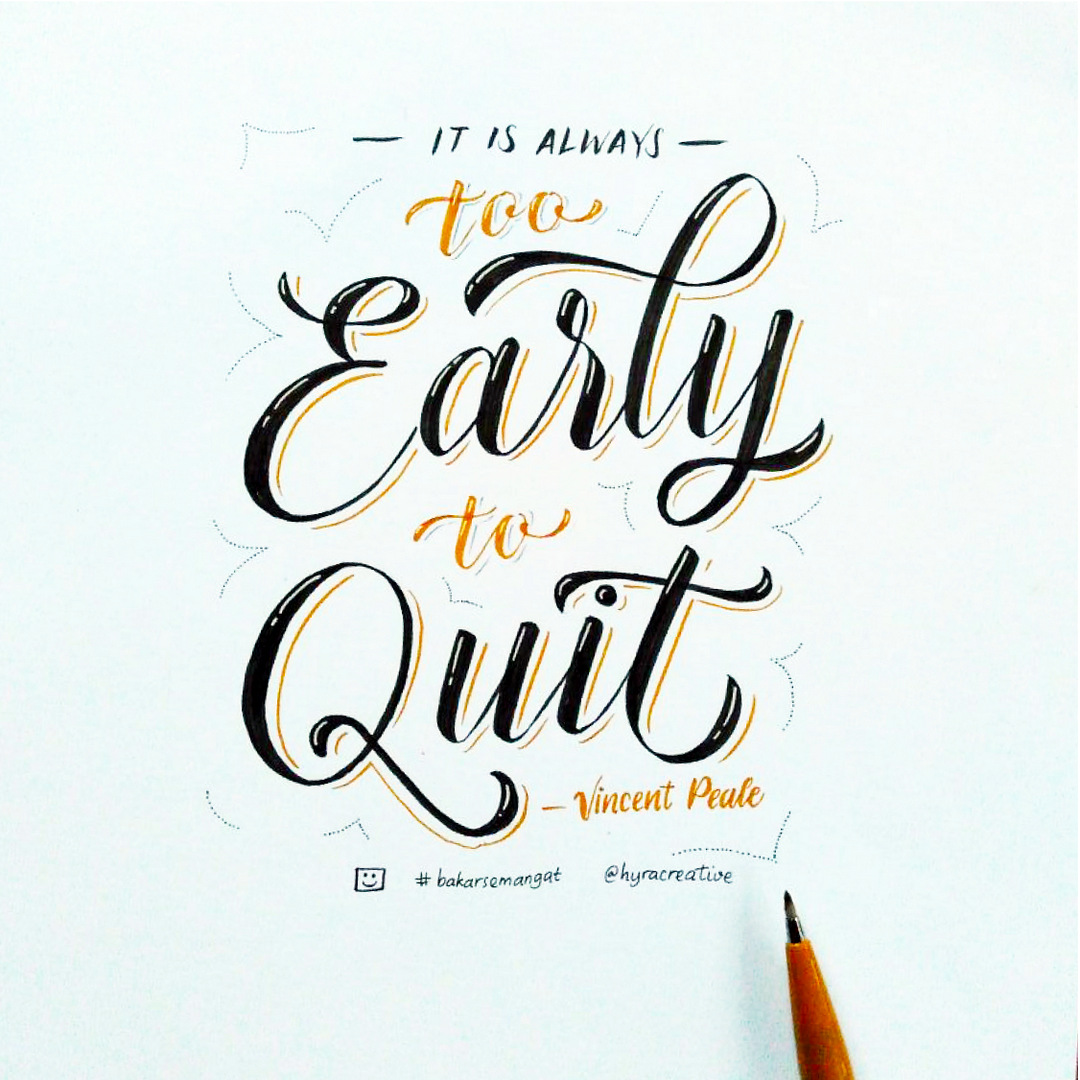 — IT IS ALWAYS —
too
Early
to
Quit
— Vincent Peale
#bakarsemangat @hyracreative